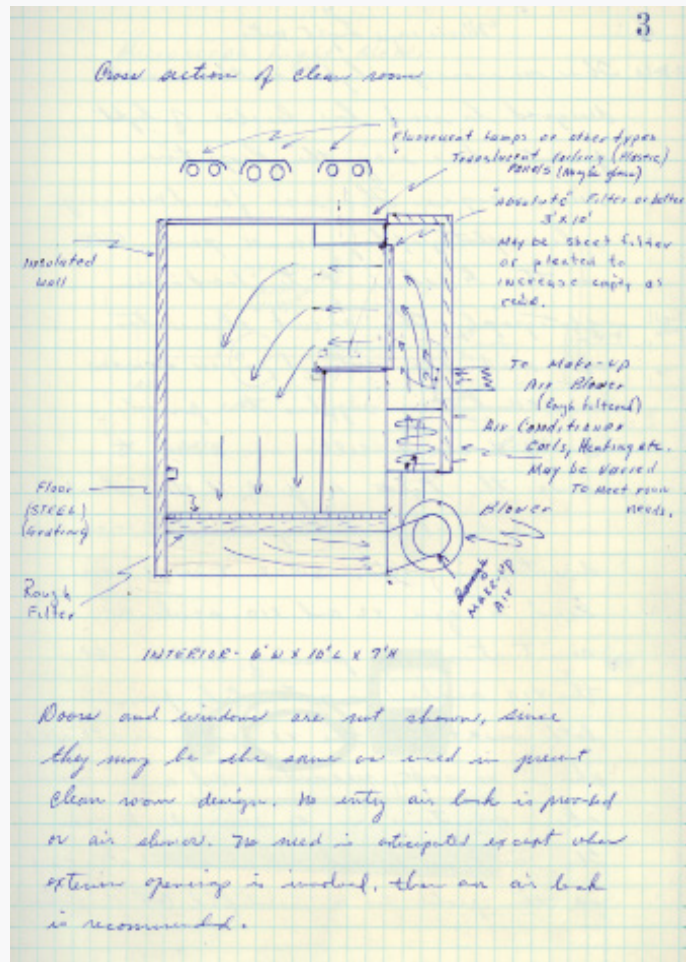 3
Cross section of clean room
Fluorescent Lamps or other types
Translucent ceiling (Plastic)
Panels (Maybe glass)
"Absolute" Filter or better
3' x 10'
May be sheet filter
or pleated to
increase
as
Insulated
Wall
To Make-up
Air Blower
(Rough filtered)
Air Conditioner
Coils, Heating etc.
May be varied
To meet room
needs.
Floor
(STEEL)
(Grating)
Blower
Rough
Filter
MAKE-UP
AIR
INTERIOR - 6' W x 10' L x 7' H
Doors and windows are not shown, since
they may be the same as used in present
clean room design. No entry air lock is provided
or air shower. No need is anticipated except when
exterior openings is involved, then an air lock
is recommended.